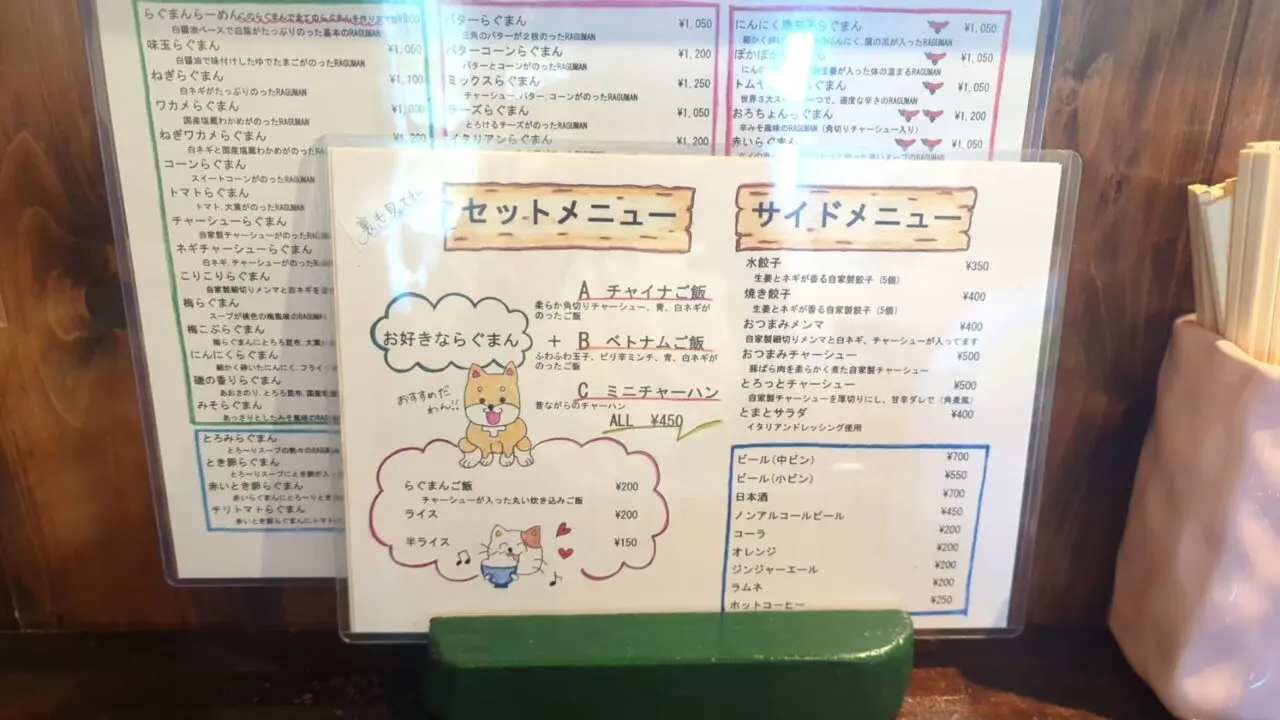 らぐまんらーめん
白醤油ベースで白葉がたっぷりのった基本のRAGUMAN
味玉らぐまん ¥1,050
白醤油で味付けしたゆでたまごがのったRAGUMAN
ねぎらぐまん ¥1,100
白ネギがたっぷりのったRAGUMAN
ワカメらぐまん
国産塩蔵わかめがのったRAGUMAN
ねぎワカメらぐまん ¥1,200
白ネギと国産塩蔵わかめがのったRAGUMAN
コーンらぐまん
スイートコーンがのったRAGUMAN
トマトらぐまん
トマト、大葉がのったRAGUMAN
チャーシューらぐまん
自家製チャーシューがのったRAGU
ネギチャーシューらぐまん
白ネギ、チャーシューがのった
こりこりらぐまん
自家製細切りメンマと白ネギを
梅らぐまん
スープが桃色の梅風味のRAGUMA
梅こぶらぐまん
梅らぐまんにとろろ昆布、大葉
にんにくらぐまん
細かく砕いたにんにく、フライ
磯の香りらぐまん
あおさのり、とろろ昆布、国産
みそらぐまん
あっさりとしたみそ風味のRAG
とろみらぐまん
とろ〜りスープの熱々の
とき卵らぐまん
とろ〜りスープにとき卵が入っ
赤いとき卵らぐまん
赤いらぐまんにとろ〜りとき
チリトマトらぐまん
赤いとき卵らぐまんにトマト
バターらぐまん ¥1,050
三角のバターが2枚のったRAGUMAN
バターコーンらぐまん ¥1,200
バターとコーンがのったRAGUMAN
ミックスらぐまん ¥1,250
チャーシュー、バター、コーンがのったRAGUMAN
チーズらぐまん ¥1,050
とろけるチーズがのったRAGUMAN
イタリアンらぐまん ¥1,200
にんにく らぐまん ¥1,050
のにんにく、鷹の爪が入ったRAGUMAN
ぽかぽか らぐまん ¥1,050
生姜が入った体の温まるRAGUMAN
トムヤ らぐまん ¥1,050
世界3大ス つで、適度な辛さのRAGUMAN
おろちょんらぐまん ¥1,200
辛みそ風味のRAGUMAN(角切りチャーシュー入り)
赤いらぐまん ¥1,050
裏も見てね
セットメニュー
お好きならぐまん
+
A チャイナご飯
柔らか角切りチャーシュー、青、白ネギが
のったご飯
B ベトナムご飯
ふわふわ玉子、ピリ辛ミンチ、青、白ネギが
のったご飯
C ミニチャーハン
昔ながらのチャーハン
ALL ¥450
おすすめだ
わん!!
らぐまんご飯 ¥200
チャーシューが入った丸い炊き込みご飯
ライス ¥200
半ライス ¥150
サイドメニュー
水餃子 ¥350
生姜とネギが香る自家製餃子(5個)
焼き餃子 ¥400
生姜とネギが香る自家製餃子(5個)
おつまみメンマ ¥400
自家製細切りメンマと白ネギ、チャーシューが入ってます
おつまみチャーシュー ¥500
豚ばら肉を柔らかく煮た自家製チャーシュー
とろっとチャーシュー ¥500
自家製チャーシューを厚切りにし、甘辛ダレで(角煮風)
とまとサラダ ¥400
イタリアンドレッシング使用
ビール(中ビン) ¥700
ビール(小ビン) ¥550
日本酒 ¥700
ノンアルコールビール ¥450
コーラ ¥200
オレンジ ¥200
ジンジャーエール ¥200
ラムネ ¥200
ホットコーヒー ¥250